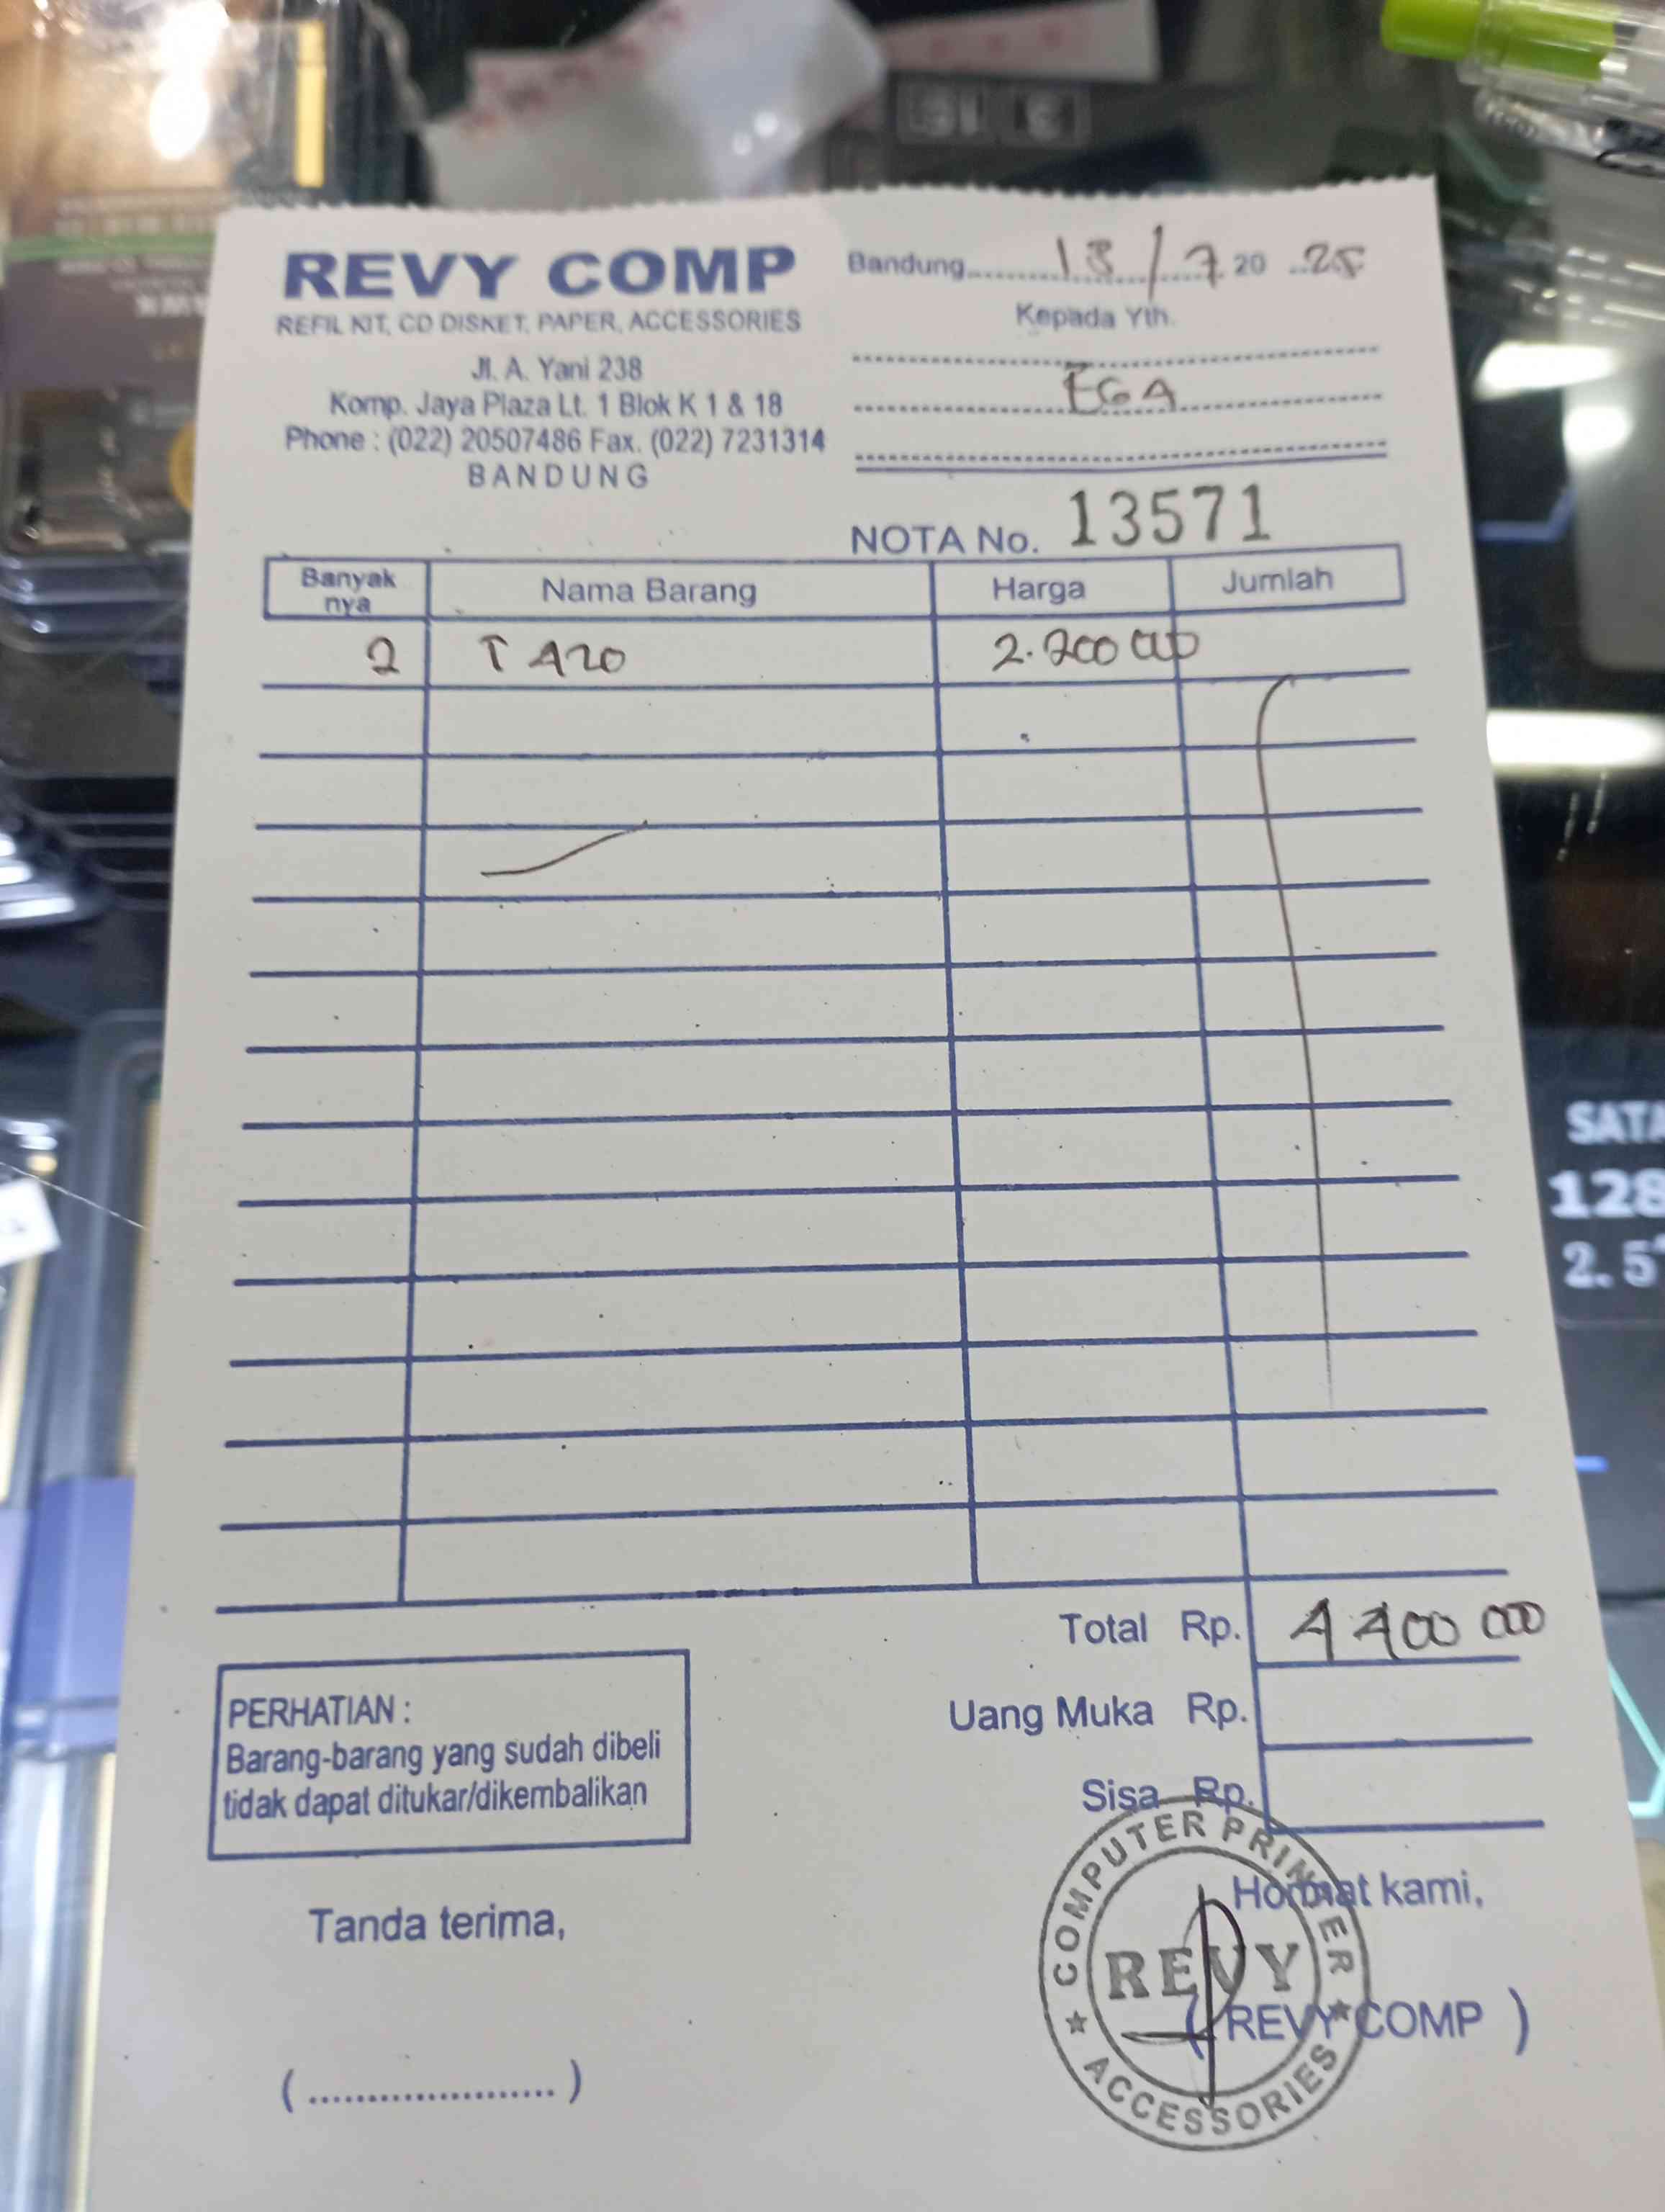 REVY COMP
REFIL KIT, CD DISKET, PAPER, ACCESSORIES
Jl. A. Yani 238
Komp. Jaya Plaza Lt. 1 Blok K 1 & 18
Phone : (022) 20507486 Fax. (022) 7231314
BANDUNG
Bandung 13/7 20 25
Kepada Yth.
EGA
NOTA No. 13571
Banyak nya Nama Barang Harga Jumlah
2 T 420 2.200 000
Total Rp. 4 400 000
Uang Muka Rp.
Sisa Rp.
PERHATIAN :
Barang-barang yang sudah dibeli
tidak dapat ditukar/dikembalikan
Tanda terima,
Hormat kami,
( REVY COMP )
COMPUTER PRINTER
REVY
ACCESSORIES
SATA
128
2.5"